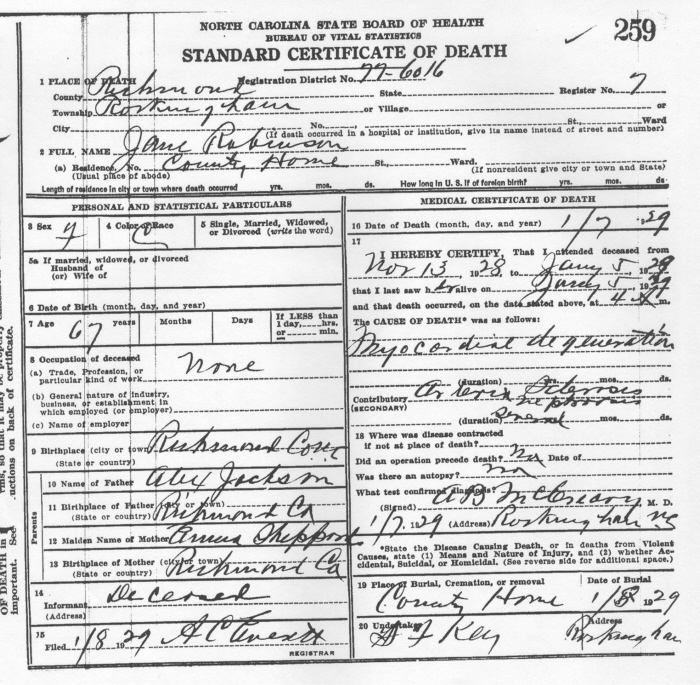 NORTH CAROLINA STATE BOARD OF HEALTH
BUREAU OF VITAL STATISTICS
259
STANDARD CERTIFICATE OF DEATH
1 PLACE OF DEATH Registration District No. 77-6016
County Richmond State Register No. 7
Township Rockingham or Village or
City No. St., Ward
(If death occurred in a hospital or institution, give its name instead of street and number)
2 FULL NAME Jane Robinson
(a) Residence, No. County Home St., Ward.
(Usual place of abode) (If nonresident give city or town and State)
Length of residence in city or town where death occurred yrs. mos. ds. How long in U. S. if of foreign birth? yrs. mos. ds.
PERSONAL AND STATISTICAL PARTICULARS
3 Sex 4 Color or Race C 5 Single, Married, Widowed, or Divorced (write the word)
5a If married, widowed, or divorced
Husband of
(or) Wife of
6 Date of Birth (month, day, and year)
7 Age 67 years Months Days If LESS than 1 day, hrs. or min.
8 Occupation of deceased None
(a) Trade, Profession, or
particular kind of work
(b) General nature of industry,
business, or establishment in
which employed (or employer)
(c) Name of employer
9 Birthplace (city or town) Richmond
(State or country)
Parents
10 Name of Father Alex Jackson
11 Birthplace of Father (city or town)
(State or country) Richmond Co
12 Maiden Name of Mother
13 Birthplace of Mother (city or town)
(State or country) Richmond Co
14 Informant Deceased
(Address)
15 Filed 1/8 1929 A C Everett
REGISTRAR
MEDICAL CERTIFICATE OF DEATH
16 Date of Death (month, day, and year) 1/7 1929
17 I HEREBY CERTIFY, That I attended deceased from
Nov 13 1928, to Jany 5, 1929
that I last saw h er alive on Jany 5 1929
and that death occurred, on the date stated above, at 4 m.
The CAUSE OF DEATH* was as follows:
Myocardial degeneration
(duration) yrs. mos. ds.
Contributory Arterio Sclerosis
(SECONDARY) nephrosis
(duration) ds.
18 Where was disease contracted
if not at place of death?
Did an operation precede death? No Date of
Was there an autopsy? No
What test confirmed diagnosis?
(Signed) M. D.
1/7, 1929 (Address) Rockingham NC
*State the Disease Causing Death, or in deaths from Violent
Causes, state (1) Means and Nature of Injury, and (2) whether Ac-
cidental, Suicidal, or Homicidal. (See reverse side for additional space.)
19 Place of Burial, Cremation, or removal Date of Burial
County Home 1/8 1929
20 Undertaker Address
Key Rockingham
OF DEATH in
important. See
uctions on back of certificate.